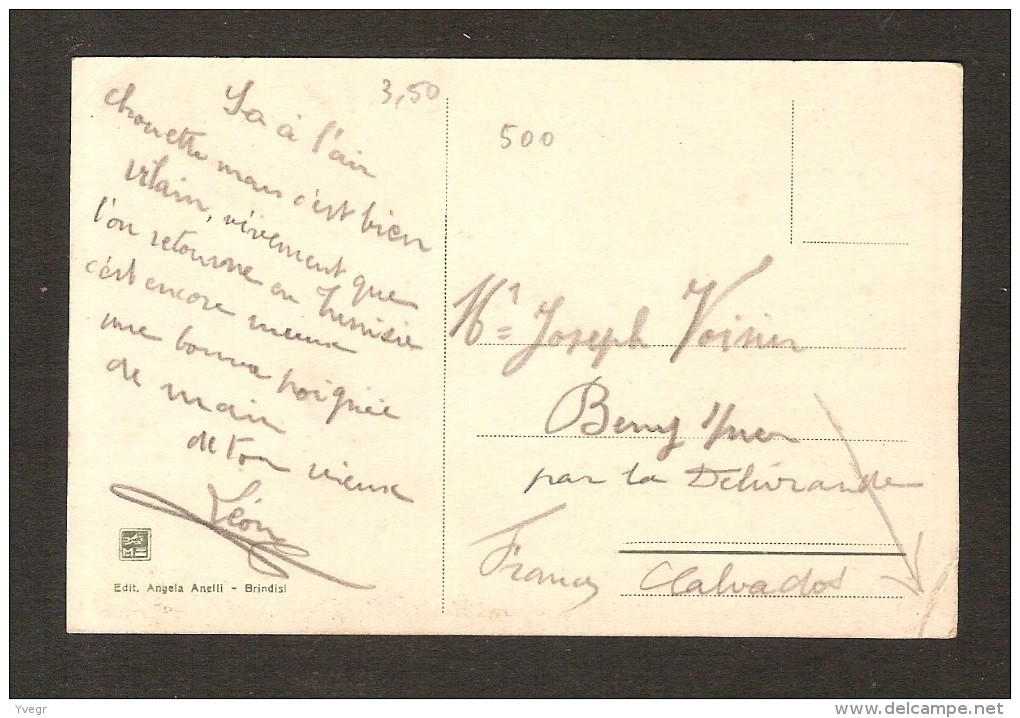 3,50
500
Sa à l'air
chouette mais c'est bien
vilain, vivement que
l'on retourne en Tunisie
c'est encore mieux
une bonne poignée
de main
de ton vieux
Léon
Edit. Angela Anelli - Brindisi
Mr Joseph Voisin
Beny s/mer
par la Delivrande
France Calvados
Yvegr
www.delcampe.net